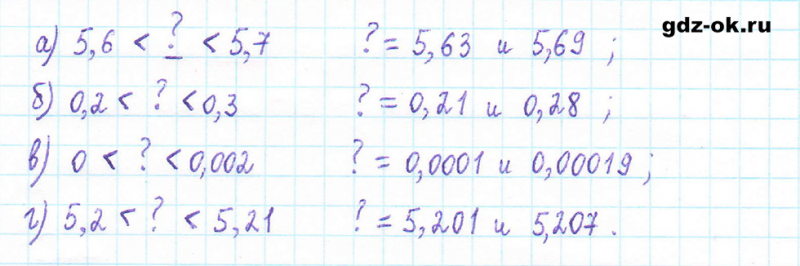 gdz-ok.ru
а) 5,6 < ? < 5,7 ? = 5,63 и 5,69 ;
б) 0,2 < ? < 0,3 ? = 0,21 и 0,28 ;
в) 0 < ? < 0,002 ? = 0,0001 и 0,00019 ;
г) 5,2 < ? < 5,21 ? = 5,201 и 5,207 .